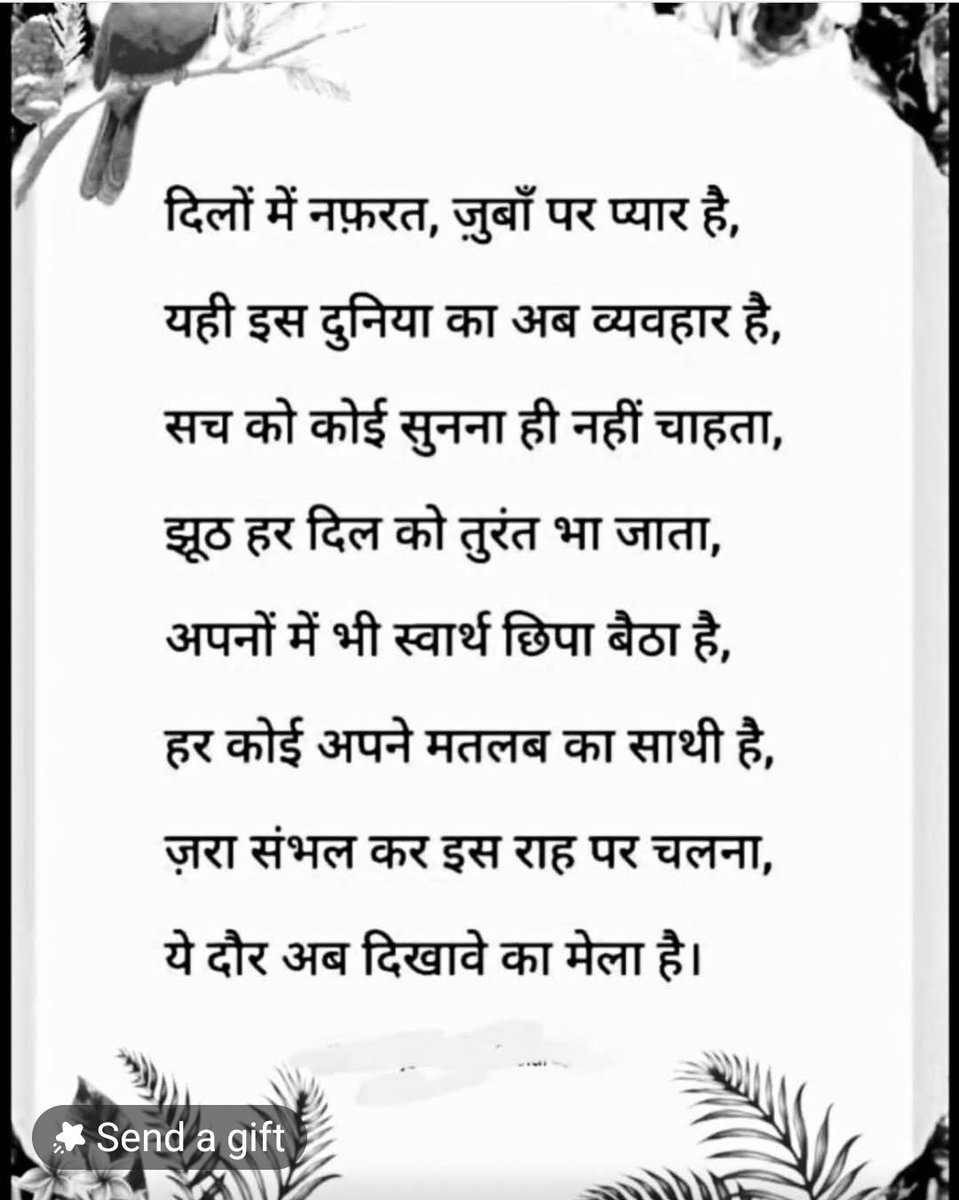 दिलों में नफ़रत, ज़ुबाँ पर प्यार है,
यही इस दुनिया का अब व्यवहार है,
सच को कोई सुनना ही नहीं चाहता,
झूठ हर दिल को तुरंत भा जाता,
अपनों में भी स्वार्थ छिपा बैठा है,
हर कोई अपने मतलब का साथी है,
ज़रा संभल कर इस राह पर चलना,
ये दौर अब दिखावे का मेला है।
Send a gift